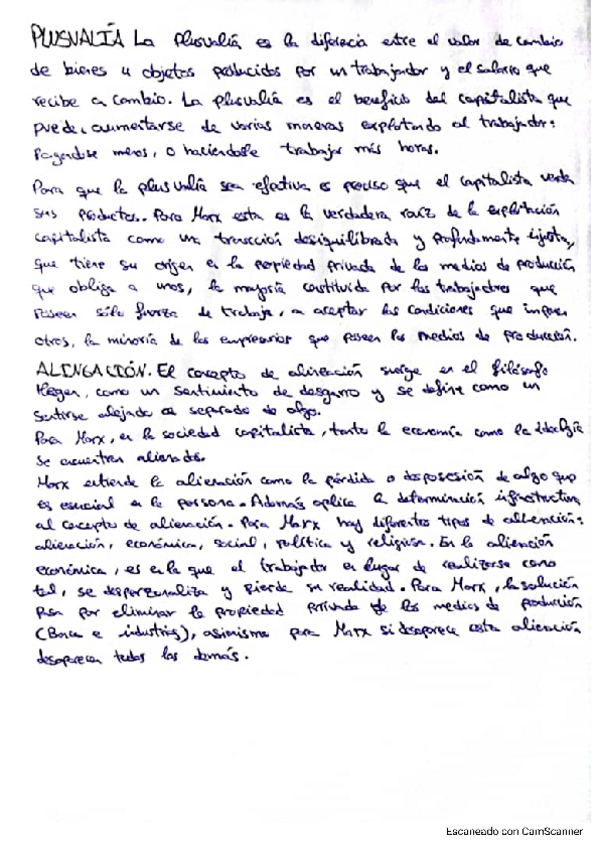 PLUSVALÍA La plusvalía, es la diferecia entre el valor de cambio
de bienes u objetos producidos por un trabajador y el salario que
recibe a cambio. La plusvalía es el beneficio del capitalista que
puede, aumentarse de varias maneras explotando al trabajador:
Pagandose menos, o haciendole trabajar más horas.
Para que la plusvalía sea efectiva es preciso que el capitalista venda
sus productos. Para Marx esta es la verdadera raíz de la explotación
capitalista como una transcción desiquilibrada y profundamente injusta,
que tiene su origen en la propiedad privada de los medios de producción
que obliga a unos, la mayoría constituida por los trabajadores que
poseen sólo fuerza de trabajo, a aceptar las condiciones que imponen
otros, la minoría de los empresarios que poseen los medios de producción.
ALIENACIÓN. El concepto de alineación surge en el filósofo
Hegen, como un sentimiento de desgarro y se define como un
sentirse alejado o separado de algo.
Para Marx, en la sociedad capitalista, tanto la economía como la ideología
se encuentran alienados.
Marx entiende la alienación como la pérdida o desposesión de algo que
es esencial en la persona. Además aplica la determinación infrestructura
al concepto de alienación. Para Marx hay diferentes tipos de alienación:
alienación, económica, social, política y religiosa. En la alienación
económica, es en la que el trabajador en lugar de realizarse como
tal, se despersonaliza y pierde su realidad. Para Marx, la solución
pasa por eliminar la propiedad privada de los medios de producción
(Banca e industrias), asimismo para Marx si desaparece esta alienación
desaparecen todas las demás.
Escaneado con CamScanner